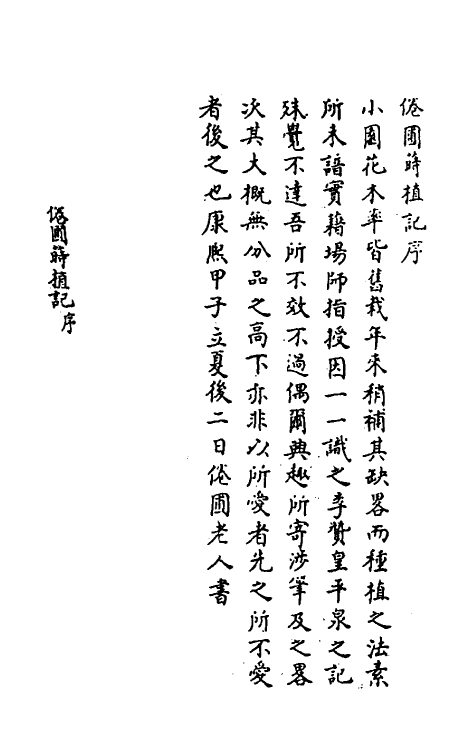 倦圃蒔植記序
小園花木率皆舊栽年來稍補其缺畧而種植之法素
所未諳實藉場師指授因一一識之李贊皇平泉之記
殊覺不達吾所不效不過偶爾興趣所寄涉筆及之畧
次其大概無分品之高下亦非以所愛者先之所不愛
者後之也康熙甲子立夏後二日倦圃老人書
倦圃蒔植記序